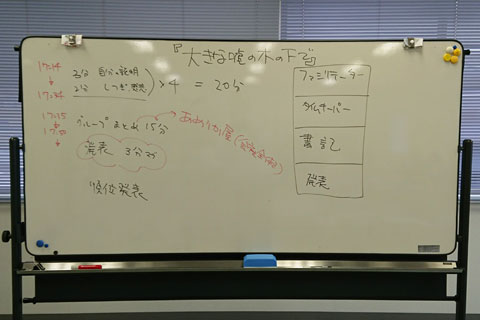 『大きな嘘の木の下で』
17:14
↓
17:34
3分 自分の説明
2分 しつぎ
×4 = 20分
17:35
↓
17:50
グループまとめ 15分
発表 3分
順位発表
ファシリテーター
タイムキーパー
書記
発表